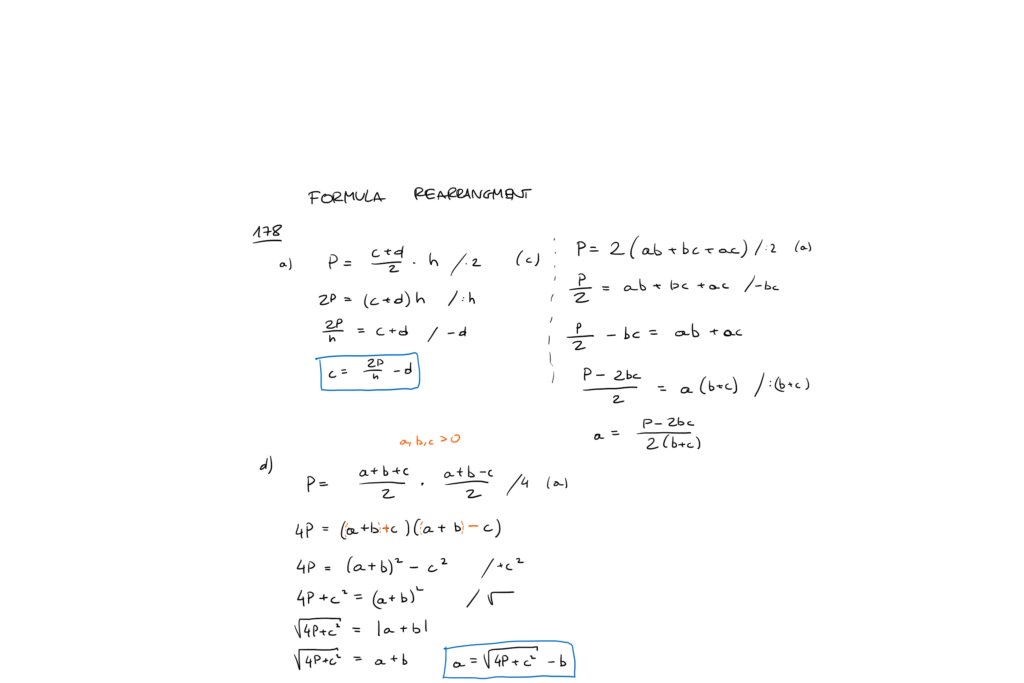 FORMULA REARRANGMENT
178
a) P = (c+d)/2 · h /·2 (c)
2P = (c+d)h /:h
2P/h = c+d / -d
c = 2P/h - d
P = 2(ab + bc + ac) /:2 (a)
P/2 = ab + bc + ac /-bc
P/2 - bc = ab + ac
(P - 2bc)/2 = a(b+c) /:(b+c)
a = (P-2bc)/(2(b+c))
a, b, c > 0
d) P = (a+b+c)/2 · (a+b-c)/2 /4 (a)
4P = ((a+b)+c)((a+b)-c)
4P = (a+b)² - c² /+c²
4P+c² = (a+b)² /√
√(4P+c²) = |a+b|
√(4P+c²) = a+b
a = √(4P+c²) - b